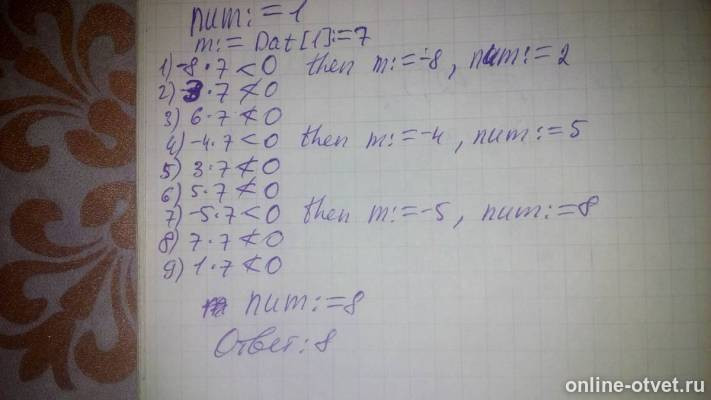 num:=1
m:= Dat[1]:=7
1) -8·7<0 then m:=-8, num:=2
2) 3·7≮0
3) 6·7≮0
4) -4·7<0 then m:=-4, num:=5
5) 3·7≮0
6) 5·7≮0
7) -5·7<0 then m:=-5, num:=8
8) 7·7≮0
9) 1·7≮0
num:=8
Ответ: 8
online-otvet.ru